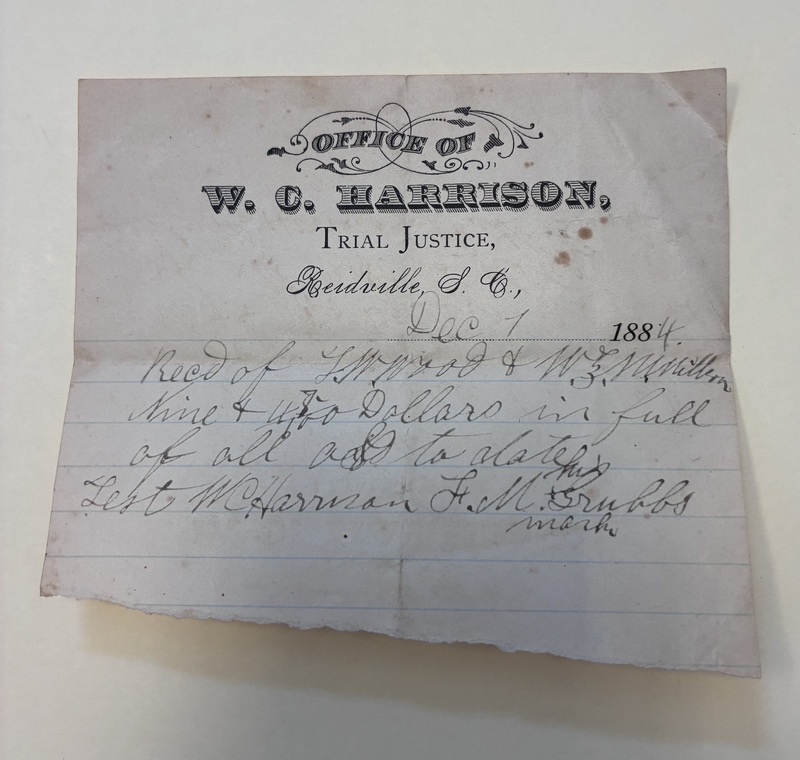 OFFICE OF
W. C. HARRISON,
TRIAL JUSTICE,
Reidville, S. C.,
Dec 1 1884.
Recd of Wood & W
Nine & Dollars in full
of all to date
his
Test WC Harrison F. M. Grubbs
mark